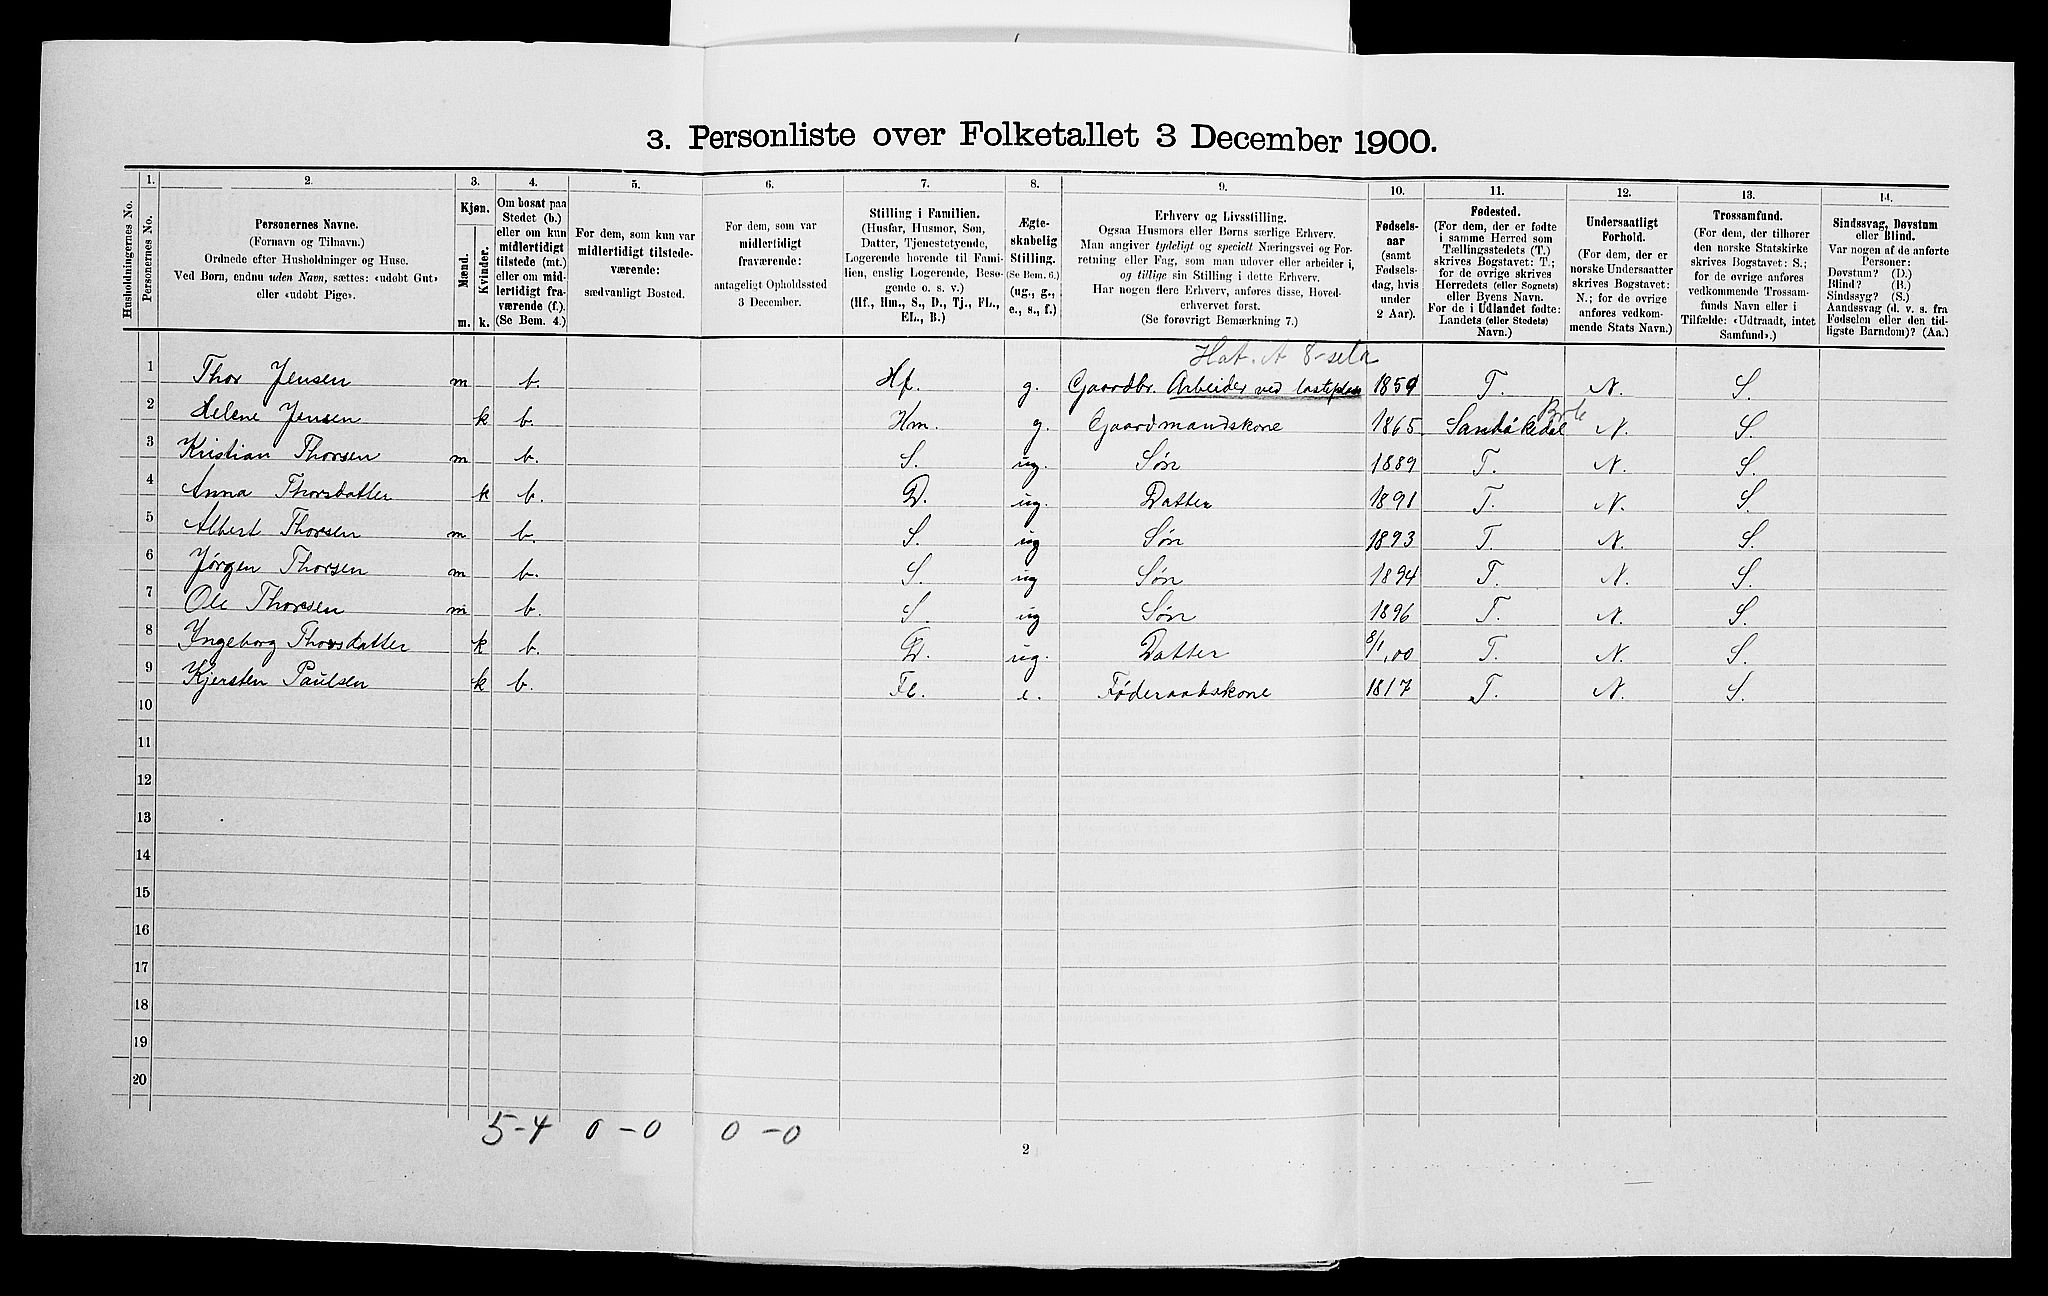 3. Personliste over Folketallet 3 December 1900.
Husholdningernes No.
1. Personernes No.
2. Personernes Navne.
(Fornavn og Tilnavn.)
Ordnede efter Husholdninger og Huse.
Ved Børn, endnu uden Navn, sættes: «udøbt Gut»
eller «udøbt Pige».
3. Kjøn.
Mænd. m.
Kvinder. k.
4. Om bosat paa
Stedet (b.)
eller om kun
midlertidigt
tilstede (mt.)
eller om mid-
lertidigt fra-
værende (f.).
(Se Bem. 4.)
5. For dem, som kun var
midlertidigt tilstede-
værende:
sædvanligt Bosted.
6. For dem, som var
midlertidigt
fraværende:
antageligt Opholdssted
3 December.
7. Stilling i Familien.
(Husfar, Husmor, Søn,
Datter, Tjenestetyende,
Logerende hørende til Fami-
lien, enslig Logerende, Besø-
gende o. s. v.)
(Hf., Hm., S., D., Tj., FL.,
EL., B.)
8. Ægte-
skabelig
Stilling.
(Se Bem. 6.)
(ug., g.,
e., s., f.)
9. Erhverv og Livsstilling.
Ogsaa Husmors eller Børns særlige Erhverv.
Man angiver tydeligt og specielt Næringsvei og For-
retning eller Fag, som man udøver eller arbeider i,
og tillige sin Stilling i dette Erhverv.
Har nogen flere Erhverv, anføres disse, Hoved-
erhvervet først.
(Se forøvrigt Bemærkning 7.)
10. Fødsels-
aar
(samt
Fødsels-
dag, hvis
under
2 Aar).
11. Fødested.
(For dem, der er fødte
i samme Herred som
Tællingsstedets (T.)
skrives Bogstavet: T.;
for de øvrige skrives
Herredets (eller Sognets)
eller Byens Navn.
For de i Udlandet fødte:
Landets (eller Stedets)
Navn.)
12. Undersaatligt
Forhold.
(For dem, der er
norske Undersaatter
skrives Bogstavet:
N.; for de øvrige
anføres vedkom-
mende Stats Navn.)
13. Trossamfund.
(For dem, der tilhører
den norske Statskirke
skrives Bogstavet: S.;
for de øvrige anføres
vedkommende Trossam-
funds Navn eller i
Tilfælde: «Udtraadt, intet
Samfund».)
14. Sindssvag, Døvstum
eller Blind.
Var nogen af de anførte
Personer:
Døvstum? (D.)
Blind? (B.)
Sindssyg? (S.)
Aandssvag (d. v. s. fra
Fødselen eller den tid-
ligste Barndom)? (Aa.)
1 Thor Jensen m b. Hf. g. Gaardbr. Arbeider ved 1859 T. N. S.
2 Helene Jensen k b. Hm. g. Gaardmandskone 1865 N. S.
3 Kristian Thorsen m b. S. ug. Søn 1889 T. N. S.
4 Anna Thorsdatter k b. D. ug. Datter 1891 T. N. S.
5 Albert Thorsen m b. S. ug Søn 1893 T. N. S.
6 Jørgen Thorsen m b. S. ug Søn 1894 T. N. S.
7 Ole Thorsen m b. S. ug Søn 1896 T. N. S.
8 Ingeborg Thorsdatter k b. D. ug. Datter 8/1,00 T. N. S.
9 Kjersten Paulsen k b. FL. e. Føderaadskone 1817 T. N. S.
10
11
12
13
14
15
16
17
18
19
20
5-4 0-0 0-0
2